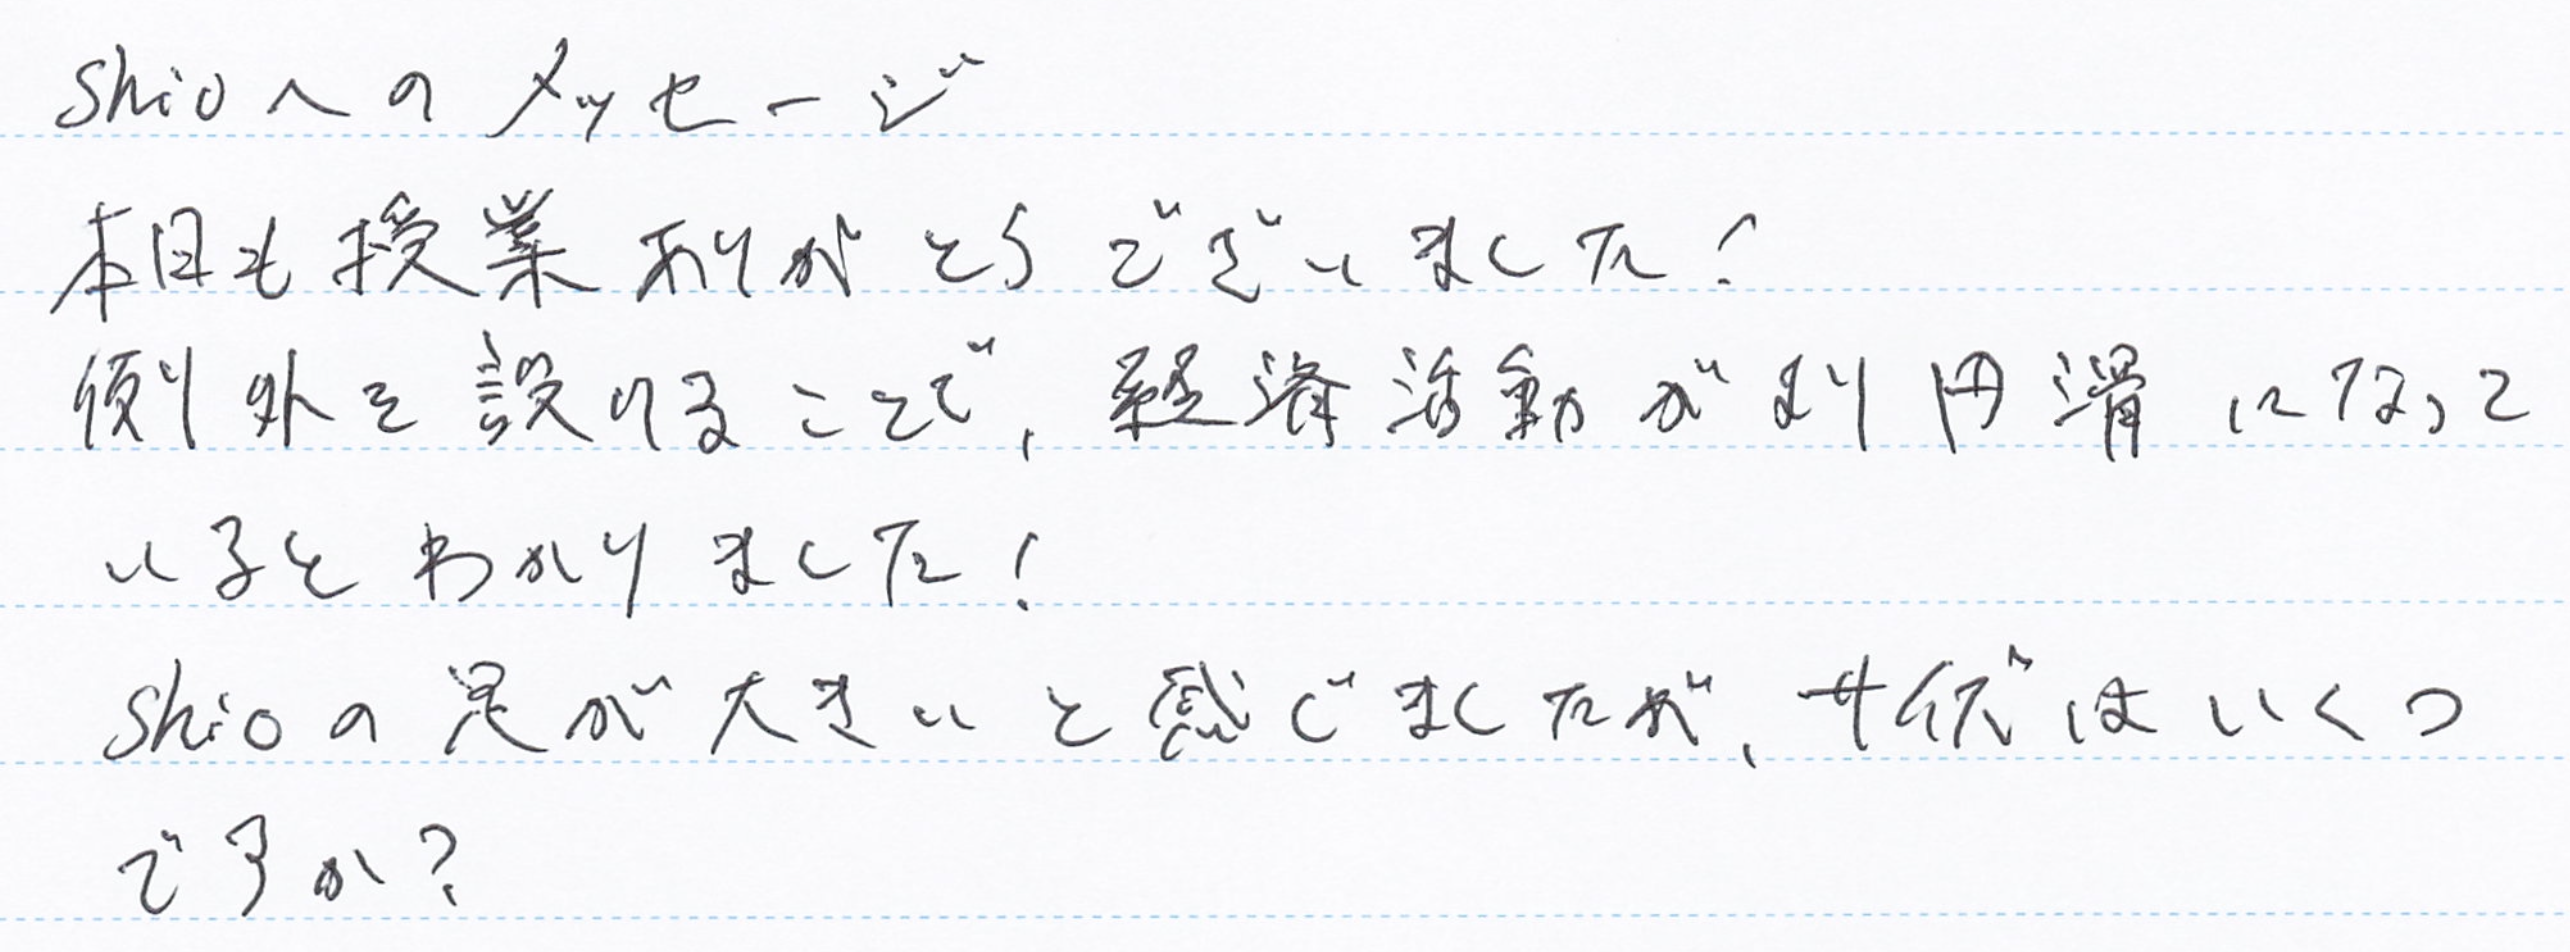 shioへのメッセージ
本日も授業ありがとうございました!
例外を設けることで,経済活動がより円滑になって
いるとわかりました!
shioの足が大きいと感じましたが,サイズはいくつ
ですか?